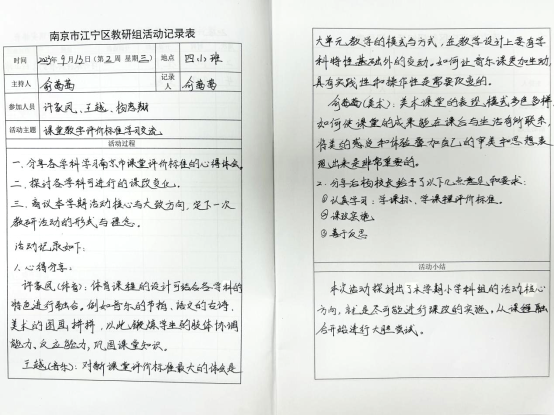 南京市江宁区教研组活动记录表
时间 2023年9月13日(第2周 星期三) 地点 四小班
主持人 俞茜茜 记录人 俞茜茜
参加人员 许家凤、王越、杨思翔
活动主题 课堂教学评价标准学习交流
活动过程
一、分享各学科学习南京市课堂评价标准的心得体会。
二、探讨各学科可进行的课改变化。
三、商议本学期活动核心与大致方向,定下一次
教研活动的形式与理念。
活动记录如下:
1.心得分享:
许家凤(体育):体育课程的设计可结合各学科的
特色进行融合。例如音乐的节拍、语文的古诗、
美术的图画拼拼,以此锻炼学生的肢体协调
能力、反应能力,巩固课堂知识。
王越(音乐):对新课堂评价标准最大的体会是
大单元教学的模式与方式,在教学设计上要有学
科特性基础外的变动。如何让音乐课更加生动,
具有实践性和操作性是需要改变的。
俞茜茜(美术):美术课堂的表现模式多色多样,
如何使课堂的成果能在课后与生活有所联系,
将美的感受和体验叠加自己的审美和思想表
现出来是非常重要的。
2.分享后杨校长给予了以下几点意见和要求:
①认真学习:学课标、学课程评价标准。
②课改实施
③善于反思
活动小结
本次活动探讨出了本学期小学科组的活动核心
方向,就是尽可能进行课改的实施。从课程融
合开始进行大胆尝试。